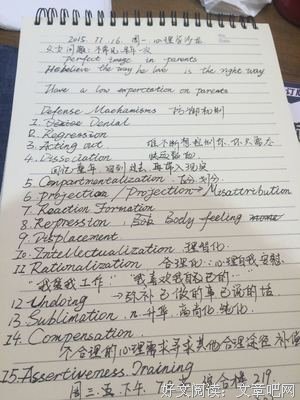 2015. 11. 16. 周一 心理学沙龙
perfect image in parents
He believe the way he live is the right way
Have a low expectation on parents
Defense Machanisms 防御机制
1. Denial
2. Regression
3. Acting out
4. Dissociation
回忆童年，回到过去，再 入现实
5. Compartmentalization 区分 划分
6. projection / Projection → Misattribution
7. Reaction Formation
8. Repression Body feeling
9. Displacement
10. Intellectualization 理智化
11. Rationalization 合理化：心理自我安慰
"我恨我工作" "我喜欢我自己的…"
12. Undoing → 弥补已做的事已说的话
13. Sublimation. n. 升华，高尚化 纯化
14. Compensation
个合理的心理需求寻求其他合理途径 补偿
15. Assertiveness Training
周三 下午 综合楼 219
好文阅读：文章吧网